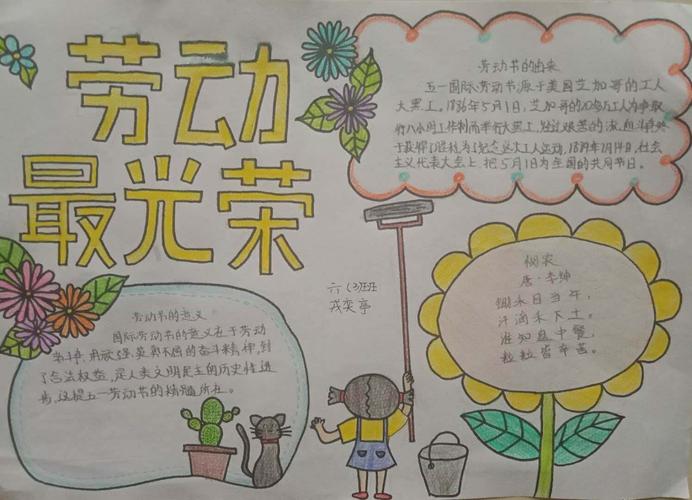 劳动
最光荣
劳动节的由来
五一国际劳动节源于美国芝加哥的工人
大罢工。1886年5月1日,芝加哥的20多万工人为争取
得八小时工作制而举行大罢工,经过艰苦的流血斗争终
于获得了胜利。为了纪念这次工人运动,1889年7月14日,社会
主义代表大会上把5月1日为全国的共同节日。
六(3)班
戎奕亭
悯农
唐·李绅
锄禾日当午,
汗滴禾下土。
谁知盘中餐,
粒粒皆辛苦。
劳动节的意义
国际劳动节的意义在于劳动
用顽强、英勇不屈的奋斗精神,到
了合法权益,是人类文明民主的历史性进
步,这是五一劳动节的精髓所在。